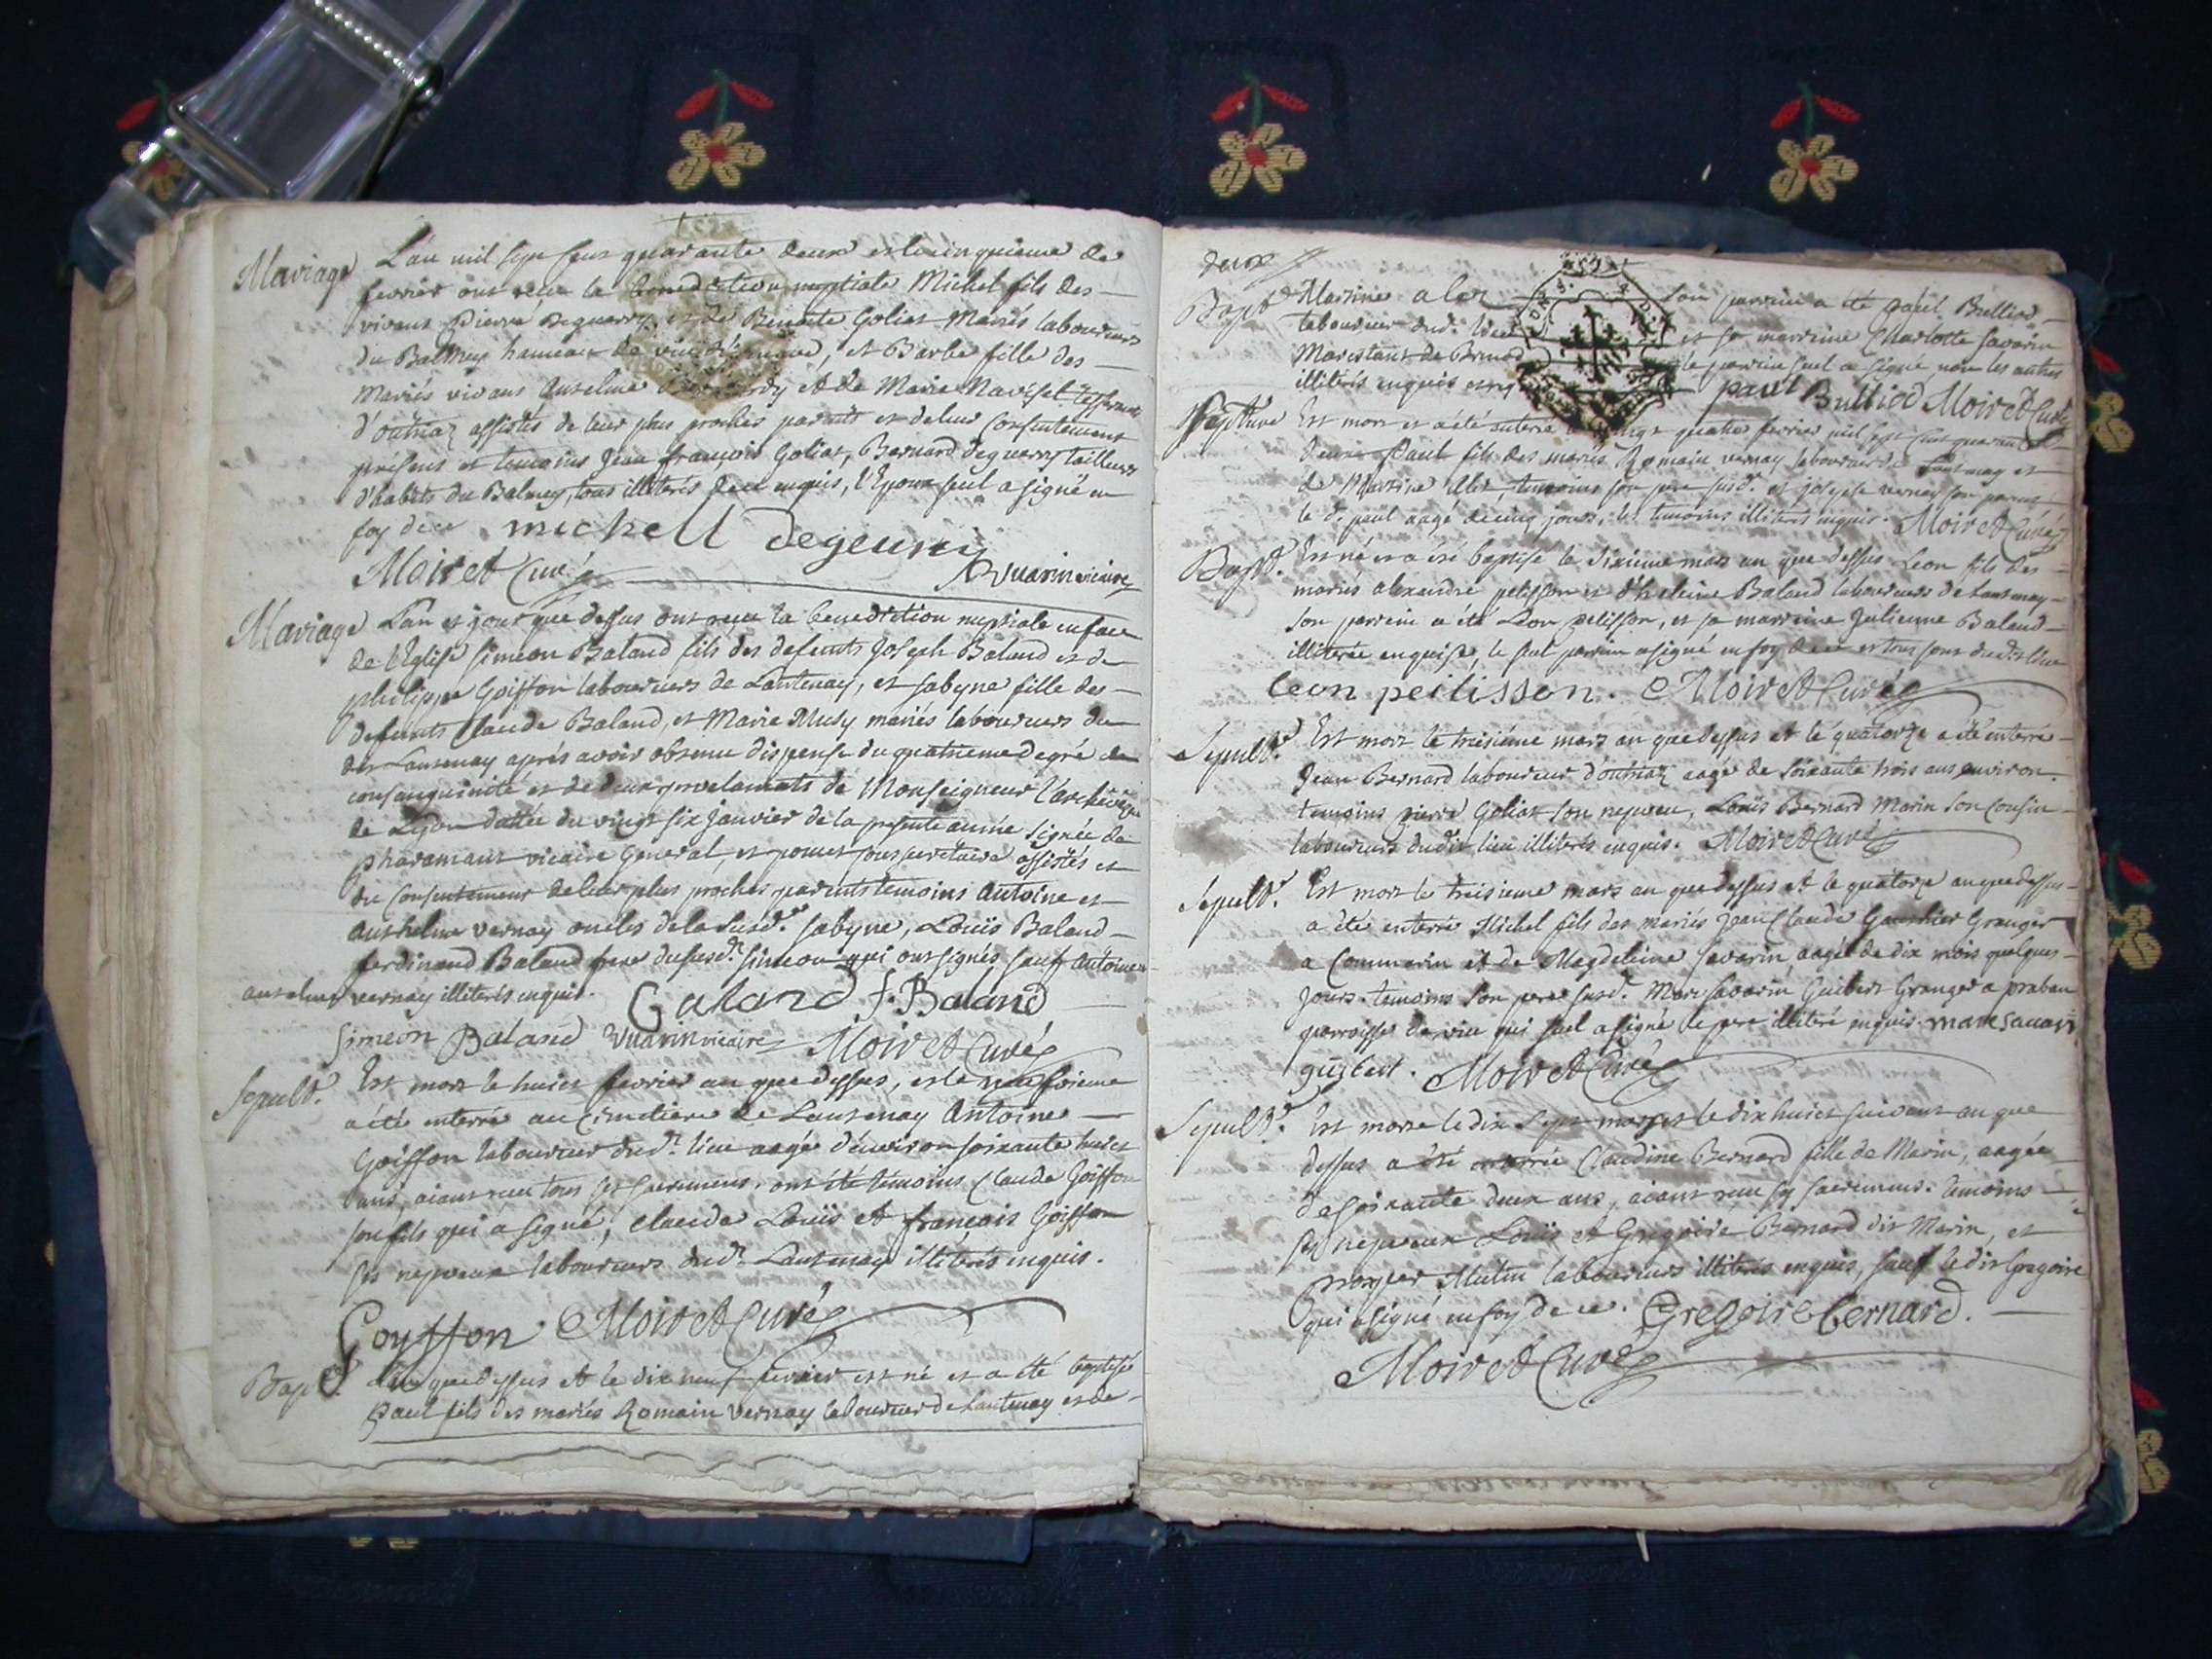 Mariage L'an mil sept cens quarante deux et le cinquieme de
fevrier ont reçu la benediction nuptiale Michel fils des
vivans Pierre Deguerry et de Benoite Goliat mariés laboureurs
du Balmey hameau de vieu d'isenave, et Barbe fille des
Mariés vivans Anselme et de Marie Ravisel
d'outriaz assistés de leur plus proches parents et de leur consentement
présens et temoins Jean françois Goliat, Bernard Deguerry tailleurs
d'habits du Balmey, tous illiterés de ce enquis, l'Epoux seul a signé en
foy de ce michell degeurry
Moiret Curé Vuarin vicaire
Mariage L'an et jour que dessus ont reçu la benediction nuptiale en face
de l'Eglise simeon Baland fils des defunts Joseph Baland et de
philippe Goiffon laboureurs de Lantenay, et sabyne fille des
defunts Claude Baland, et Marie Musy mariés laboureurs du
dit Lantenay aprés avoir obtenu dispense du quatrieme degré de
consanguinité et de deux proclamats de Monseigneur l'archevêque
de Lyon dattée du vingt six janvier de la presente année signée de
pharamant vicaire General, et ponset soussecretaire assistés et
du consentement de leur plus proches parents temoins Antoine et
Anthelme vernay oncles de la susd.e sabyne, Louis Baland
ferdinand Baland frere du susd. simeon qui ont signés sauf Antoine et
anselme vernay illiterés enquis. Baland f. Baland
simeon Baland Vuarin vicaire Moiret Curé
Sepult. Est mort le huict fevrier an que dessus, et le neufvieme
a été enterré au Cimetiere de Lantenay Antoine
Goiffon laboureur dud. lieu aagé d'environ soixante huict
ans, aiant reçu tous ses sacremens. ont été temoins Claude Goiffon
son fils qui a signé, Claude Louis et françois Goiffon
ses nepveux laboureurs dud. Lantenay illiterés enquis.
Goyffon Moiret Curé
Bapt. L'an que dessus et le dix neuf fevrier est né et a été baptisé
paul fils des mariés Romain vernay laboureur de Lantenay et de
deux
Bapt. Martine alex son parrein a été paul Bullied
laboureur dud. lieu et sa marreine Charlotte savarin
Marestans de Brenod le parrein seul a signé non les autres
illiterés enquis paul Bullied Moiret Curé
Sepulture Est mort et a été enterré le vingt quatre fevrier mil sept cent quarante
deux Paul fils des mariés Romain vernay laboureur de Lantenay et
de Martine Alex, temoins son pere susd. et joseph vernay son parent
le d. paul aagé de cinq jours, les temoins illiterés enquis. Moiret Curé
Bapt. Est né et a été baptisé le sixieme mars an que dessus Leon fils des
mariés alexandre pelisson et d'heleine Baland laboureurs de Lantenay
son parrein a été Leon pelisson, et sa marreine Julienne Baland
illiterée enquise, le seul parrein a signé en foy de ce et tous sont dudit lieu
leon peilisson. Moiret Curé
Sepult. Est mort le treisiéme mars an que dessus et le quatorze a été enterré
Jean Bernard laboureur d'outriaz aagé de soixante trois ans environ.
temoins pierre Goliat son nepveu, Louis Bernard Marin son Cousin
laboureurs dudit lieu illiterés enquis. Moiret Curé
Sepult. Est mort le treisieme mars an que dessus et le quatorze an que dessus
a été enterré Michel fils des mariés Jean Claude Gauthier Granger
a Commarin et de Magdeleine savarin aagé de dix mois quelques
jours. temoins son pere susd. Marc savarin Guibert Granger a praban
parroisse de vieu qui seul a signé le pere illiteré enquis. marc savarin
guibert. Moiret Curé
Sepult. Est morte le dix sept mars et le dix huict suivant an que
dessus a été enterrée Claudine Bernard fille de Marin, aagée
de soixante deux ans, aiant reçu ses sacremens. temoins
ses nepveux Louis et Gregoire Bernard dit Marin, et
prosper Mutin laboureurs illiterés enquis, sauf le dit Gregoire
qui a signé en foy de ce. Gregoire bernard.
Moiret Curé